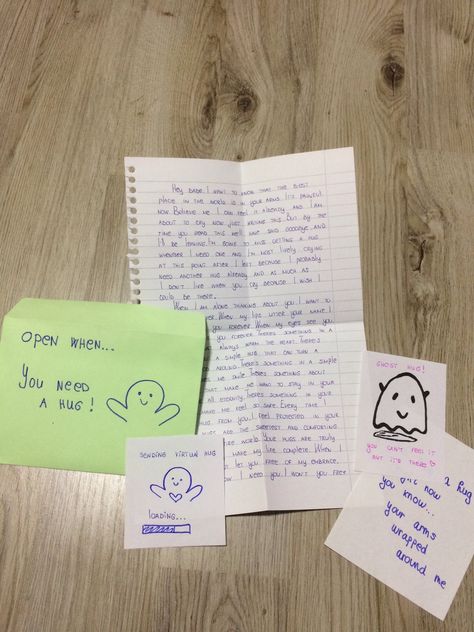 Hey babe. I want to know that the best
place in the world is in your arms. It's painful
now. Believe me I can feel it already and I am
about to cry now just writing this. But by the
time you read this we'll have said goodbye and
I'll be leaving. I'm going to miss getting a hug
whenever I need one and I'm most likely crying
at this point after I left because I probably
need another hug already and as much as
I don't like when you cry because I wish I
could be there.
When I am alone thinking about you I want to
ever. When my life utter your name I
you forever. When my eyes see you
you forever. There's something in a
always warm the heart. There's
a simple hug that can turn a
around. There's something in a simple
me smile. There's something about
that make me want to stay in your
all eternity. There's something in
me feel so safe. Every time I
hugs from you, I feel protected in your
hugs are the sweetest and comforting
world. Your hugs are truly
make my life complete. When I
let you free of my embrace.
I need you. I won't you feel
OPEN WHEN...
YOU NEED
A HUG!
SENDING VIRTUAL HUG
LOADING...
GHOST HUG!
YOU CAN'T FEEL IT
BUT IT'S THERE
a hug
now
you know..
your arms
wrapped
around me